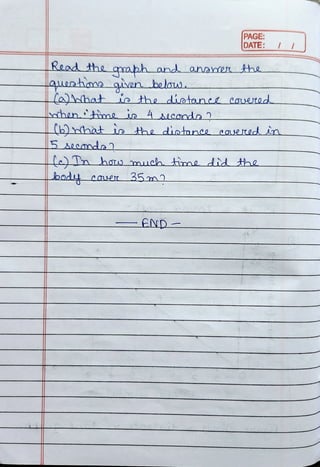 PAGE:
DATE: / /
Read the graph and answer the
questions given below.
(a) What is the distance covered
when time is 4 seconds?
(b) What is the distance covered in
5 seconds?
(c) In how much time did the
body cover 35m?
— END —